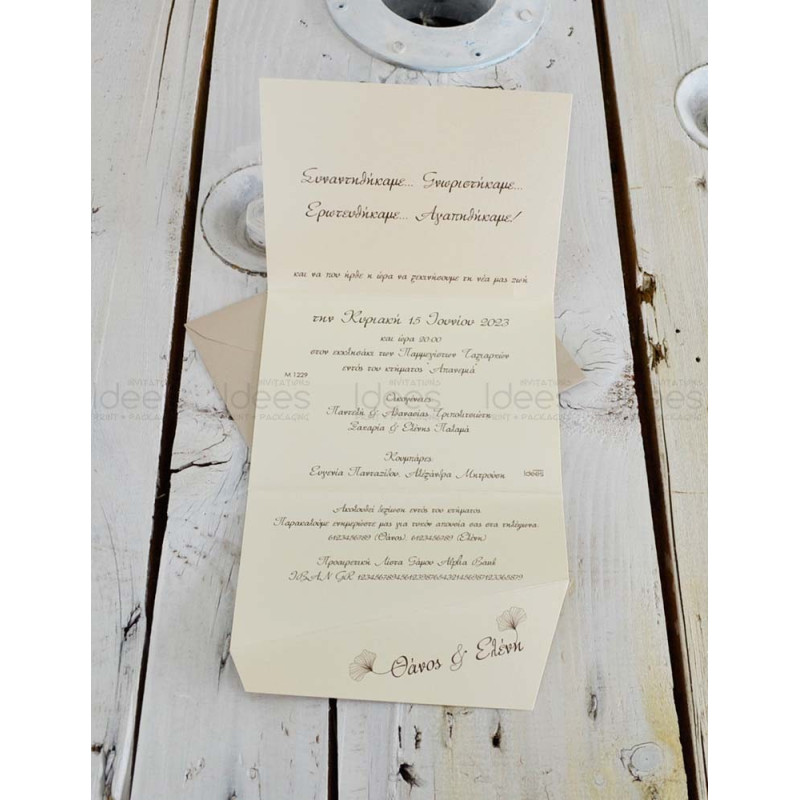 Συναντηθήκαμε... Γνωριστήκαμε...
Ερωτευθήκαμε... Αγαπηθήκαμε!
και να που ήρθε η ώρα να ξεκινήσουμε τη νέα μας ζωή
την Κυριακή 15 Ιουνίου 2023
και ώρα 20:00
στον εκκλησάκι των Παμμεγίστων Ταξιαρχών
εντός του κτήματος "Απανεμιά"
M 1229
Οικογένειες
Παντελή & Αθανασίας Τριπολιτσιώτη
Ζαχαρία & Ελένης Παλαμά
Κουμπάρες
Ευγενία Πανταζίδου, Αλεξάνδρα Μητρούση
Idees
Ακολουθεί δεξίωση εντός του κτήματος.
Παρακαλούμε ενημερώστε μας για τυχόν απουσία σας στα τηλέφωνα:
6123456789 (Θάνος), 6123456789 (Ελένη)
Προαιρετική Λίστα Γάμου Alpha Bank
IBAN GR
Θάνος & Ελένη
INVITATIONS
Idees
PRINT + PACKAGING